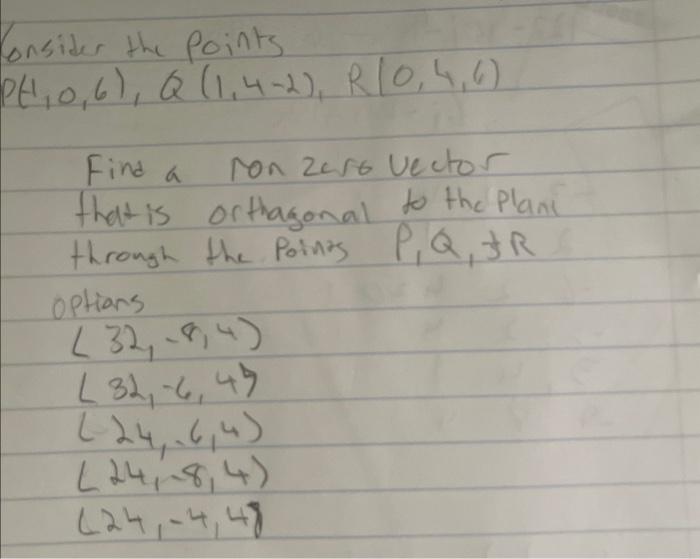 Consider the Points
P(-1,0,6), Q (1,4-2), R(0,4,6)
Find a non zero vector
that is orthagonal to the Plane
through the Points P, Q, & R
options
( 32, -8, 4)
( 32, -6, 4)
( 24, -6, 4)
( 24, -8, 4)
( 24, -4, 4)